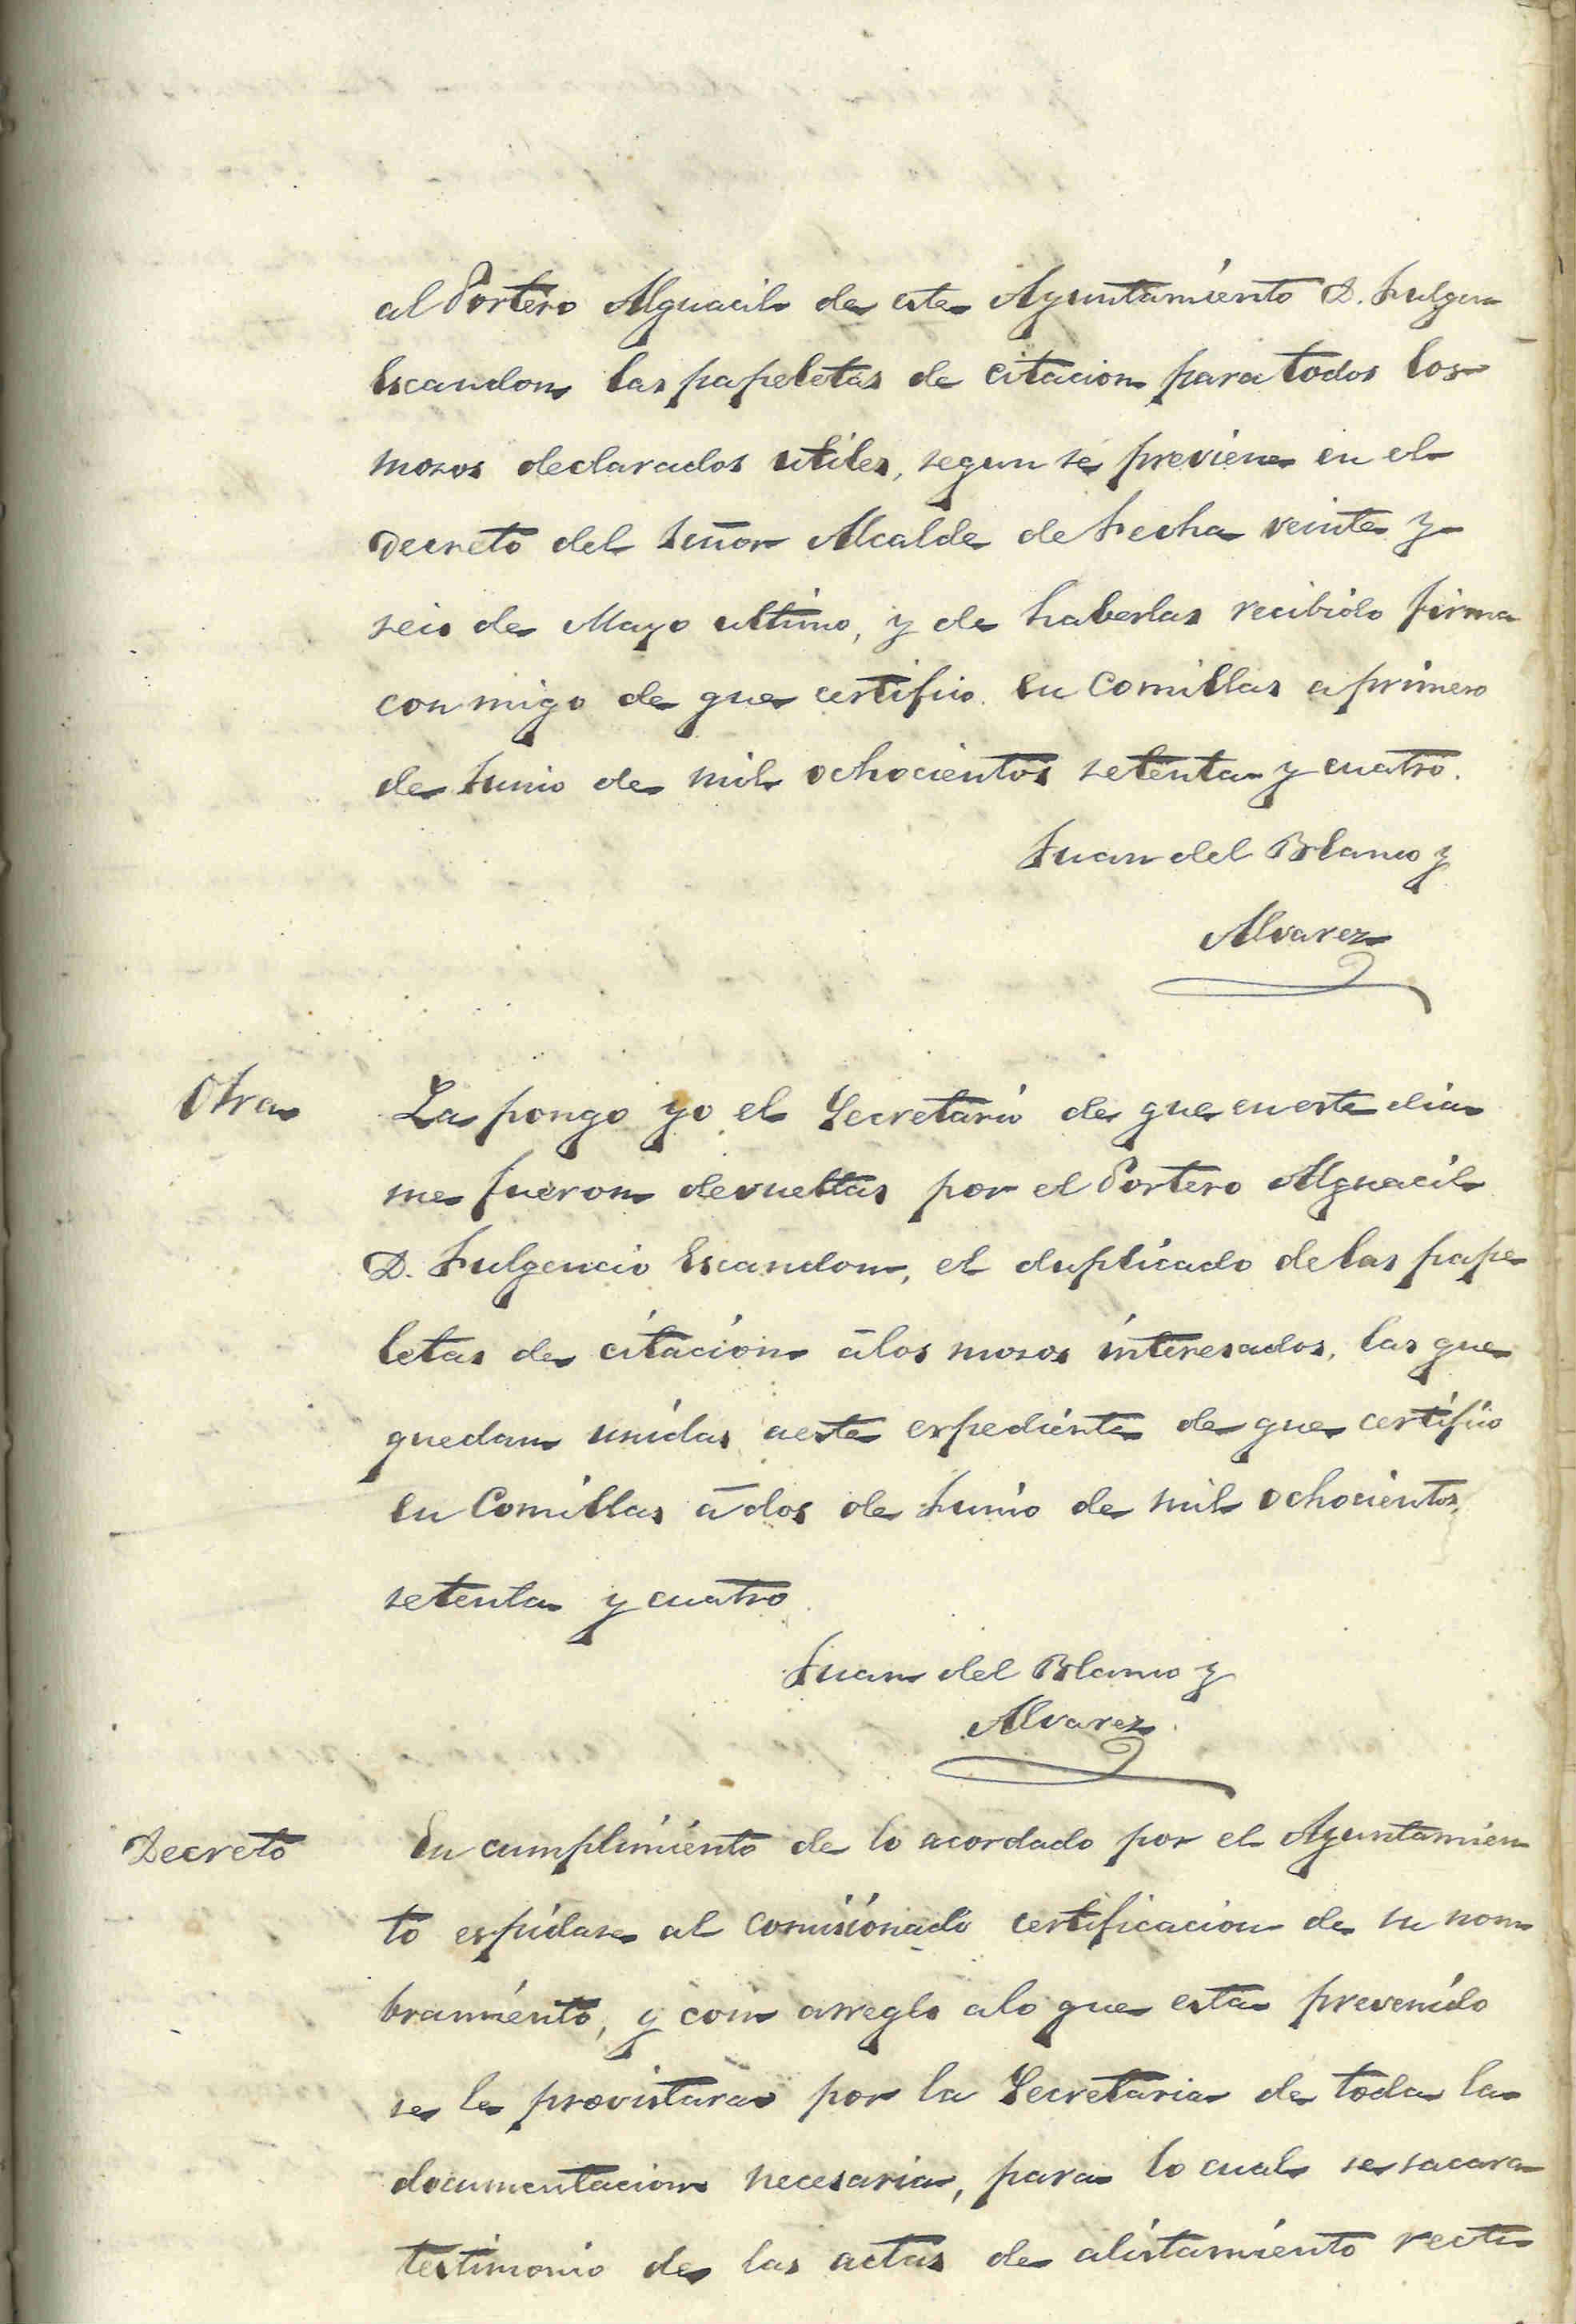 al Portero Alguacil de este Ayuntamiento D. Fulgen
Escandon las papeletas de citacion para todos los
mosos declarados utiles, segun se previene en el
Decreto del Señor Alcalde de Fecha veinte y
seis de Mayo ultimo, y de haberlas recibido firma
conmigo de que certifico. En Comillas a primero
de Junio de mil ochocientos setenta y cuatro.
Juan del Blanco y
Alvarez
Otra
La pongo yo el Secretario de que en este dia
me fueron devueltas por el Portero Alguacil
D. Fulgencio Escandon, el duplicado de las pape
letas de citacion á los mosos interesados, las que
quedan unidas a este espediente de que certifico
En Comillas á dos de Junio de mil ochocientos
setenta y cuatro
Juan del Blanco y
Alvarez
Decreto
En cumplimiento de lo acordado por el Ayuntamien
to espidase al comisionado certificacion de su nom
bramiento, y con arreglo a lo que esta prevenido
se le provistara por la Secretaria de toda la
documentacion necesaria, para lo cual se sacara
testimonio de las actas de alistamiento recti